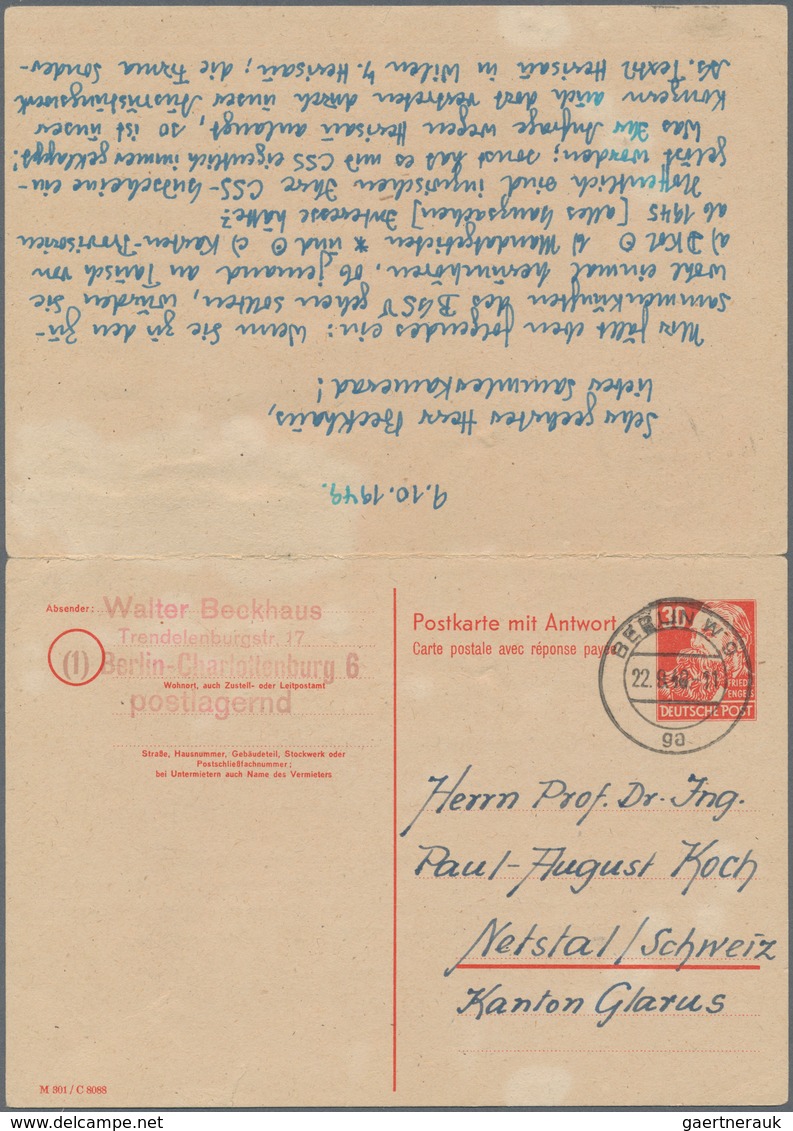 9.10.1949.
Sehr geehrter Herr Beckhaus,
lieber Sammlerkamerad!
Mir fällt eben folgendes ein: Wenn Sie zu den Zu-
sammenkünften des BGSV gehen sollten, würden Sie
wohl einmal herumhören, ob jemand an Tausch von
a) DKol ⊙ b) Mandatgebieten * und ⊙ c) Kasten-Provisorien
ab 1945 [alles Ganzsachen] Interesse hätte?
Hoffentlich sind inzwischen Ihre CSS-Gutscheine ein-
gelöst worden; sonst hat es mit CSS eigentlich immer geklappt!
Was Ihr Anfrage wegen Herisau anlangt, so ist unser
Konzern auch dort vertreten durch unser Ausrüstungswerk
AG. Textil Herisau in Wilen b/ Herisau; die Firma Sonder-
Absender: Walter Beckhaus
Trendelenburgstr. 17
(1) Berlin-Charlottenburg 6
Wohnort, auch Zustell- oder Leitpostamt
postlagernd
Straße, Hausnummer, Gebäudeteil, Stockwerk oder
Postschließfachnummer;
bei Untermietern auch Name des Vermieters
M 301 / C 8088
Postkarte mit Antwort
Carte postale avec réponse payée
30
FRIED.
ENGELS
DEUTSCHE POST
BERLIN W 9
ga
Herrn Prof. Dr.-Ing.
Paul-August Koch
Netstal/Schweiz
Kanton Glarus
gaertnerauk